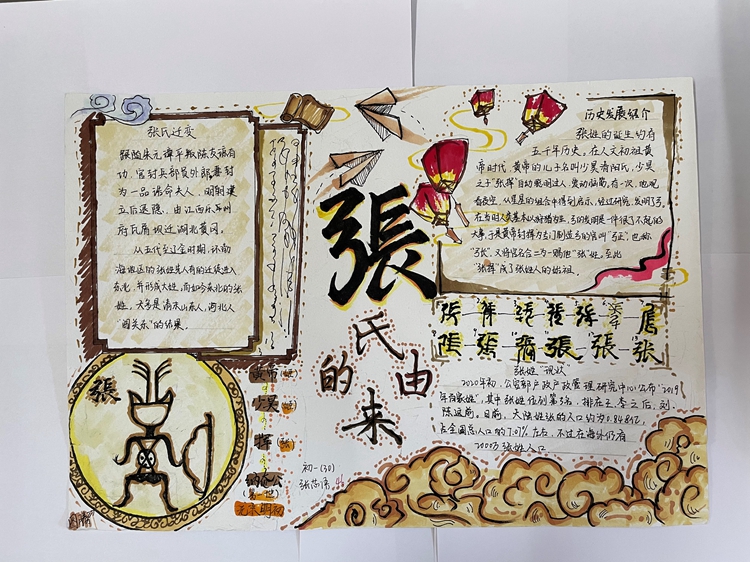 张氏迁变
张随朱元璋平叛陈友谅有
功,官封兵部员外郎,妻封
为一品诰命夫人,明朝建
立后退隐,由江西乐平州
府瓦屑坝迁湖北黄冈。
从五代至辽金时期,环渤
海地区的张姓某人有的迁徙进入
东北,并形成大姓,而如今东北的张
姓,大多是清末山东人、河北人
"闯关东"的结果。
張
黄帝(姬)
少昊
挥(张)
(第一世)
元末明初
張
氏
的
由
来
初一(30)
历史发展绍介
张姓的诞生约有
五千年历史。在人文初祖黄
帝时代,黄帝的儿子名叫少昊青阳氏,少昊
之子"张挥"自幼聪明过人,爱动脑筋,有一次,他观
看夜空,从星星的组合中得到启示,经过研究,发明了弓,
在当时人类基本以狩猎为生,弓的发明是一件很了不起的
大事,于是黄帝封挥为专门制造弓的官叫"弓正",也称
"弓长",又将官名合二为一赐他"张"姓,至此
"张挥"成了张姓人的始祖。
張 張 张
"张姓"现状
2020年初,公安部户政户政管理研究中心公布"2019
年百家姓",其中张姓位列第3名,排在王、李之后,刘、
陈这前,目前,大陆姓张的人口约为0.848亿,
占全国总人口的7.07%左右,不过在海外仍有
2000万张姓人口